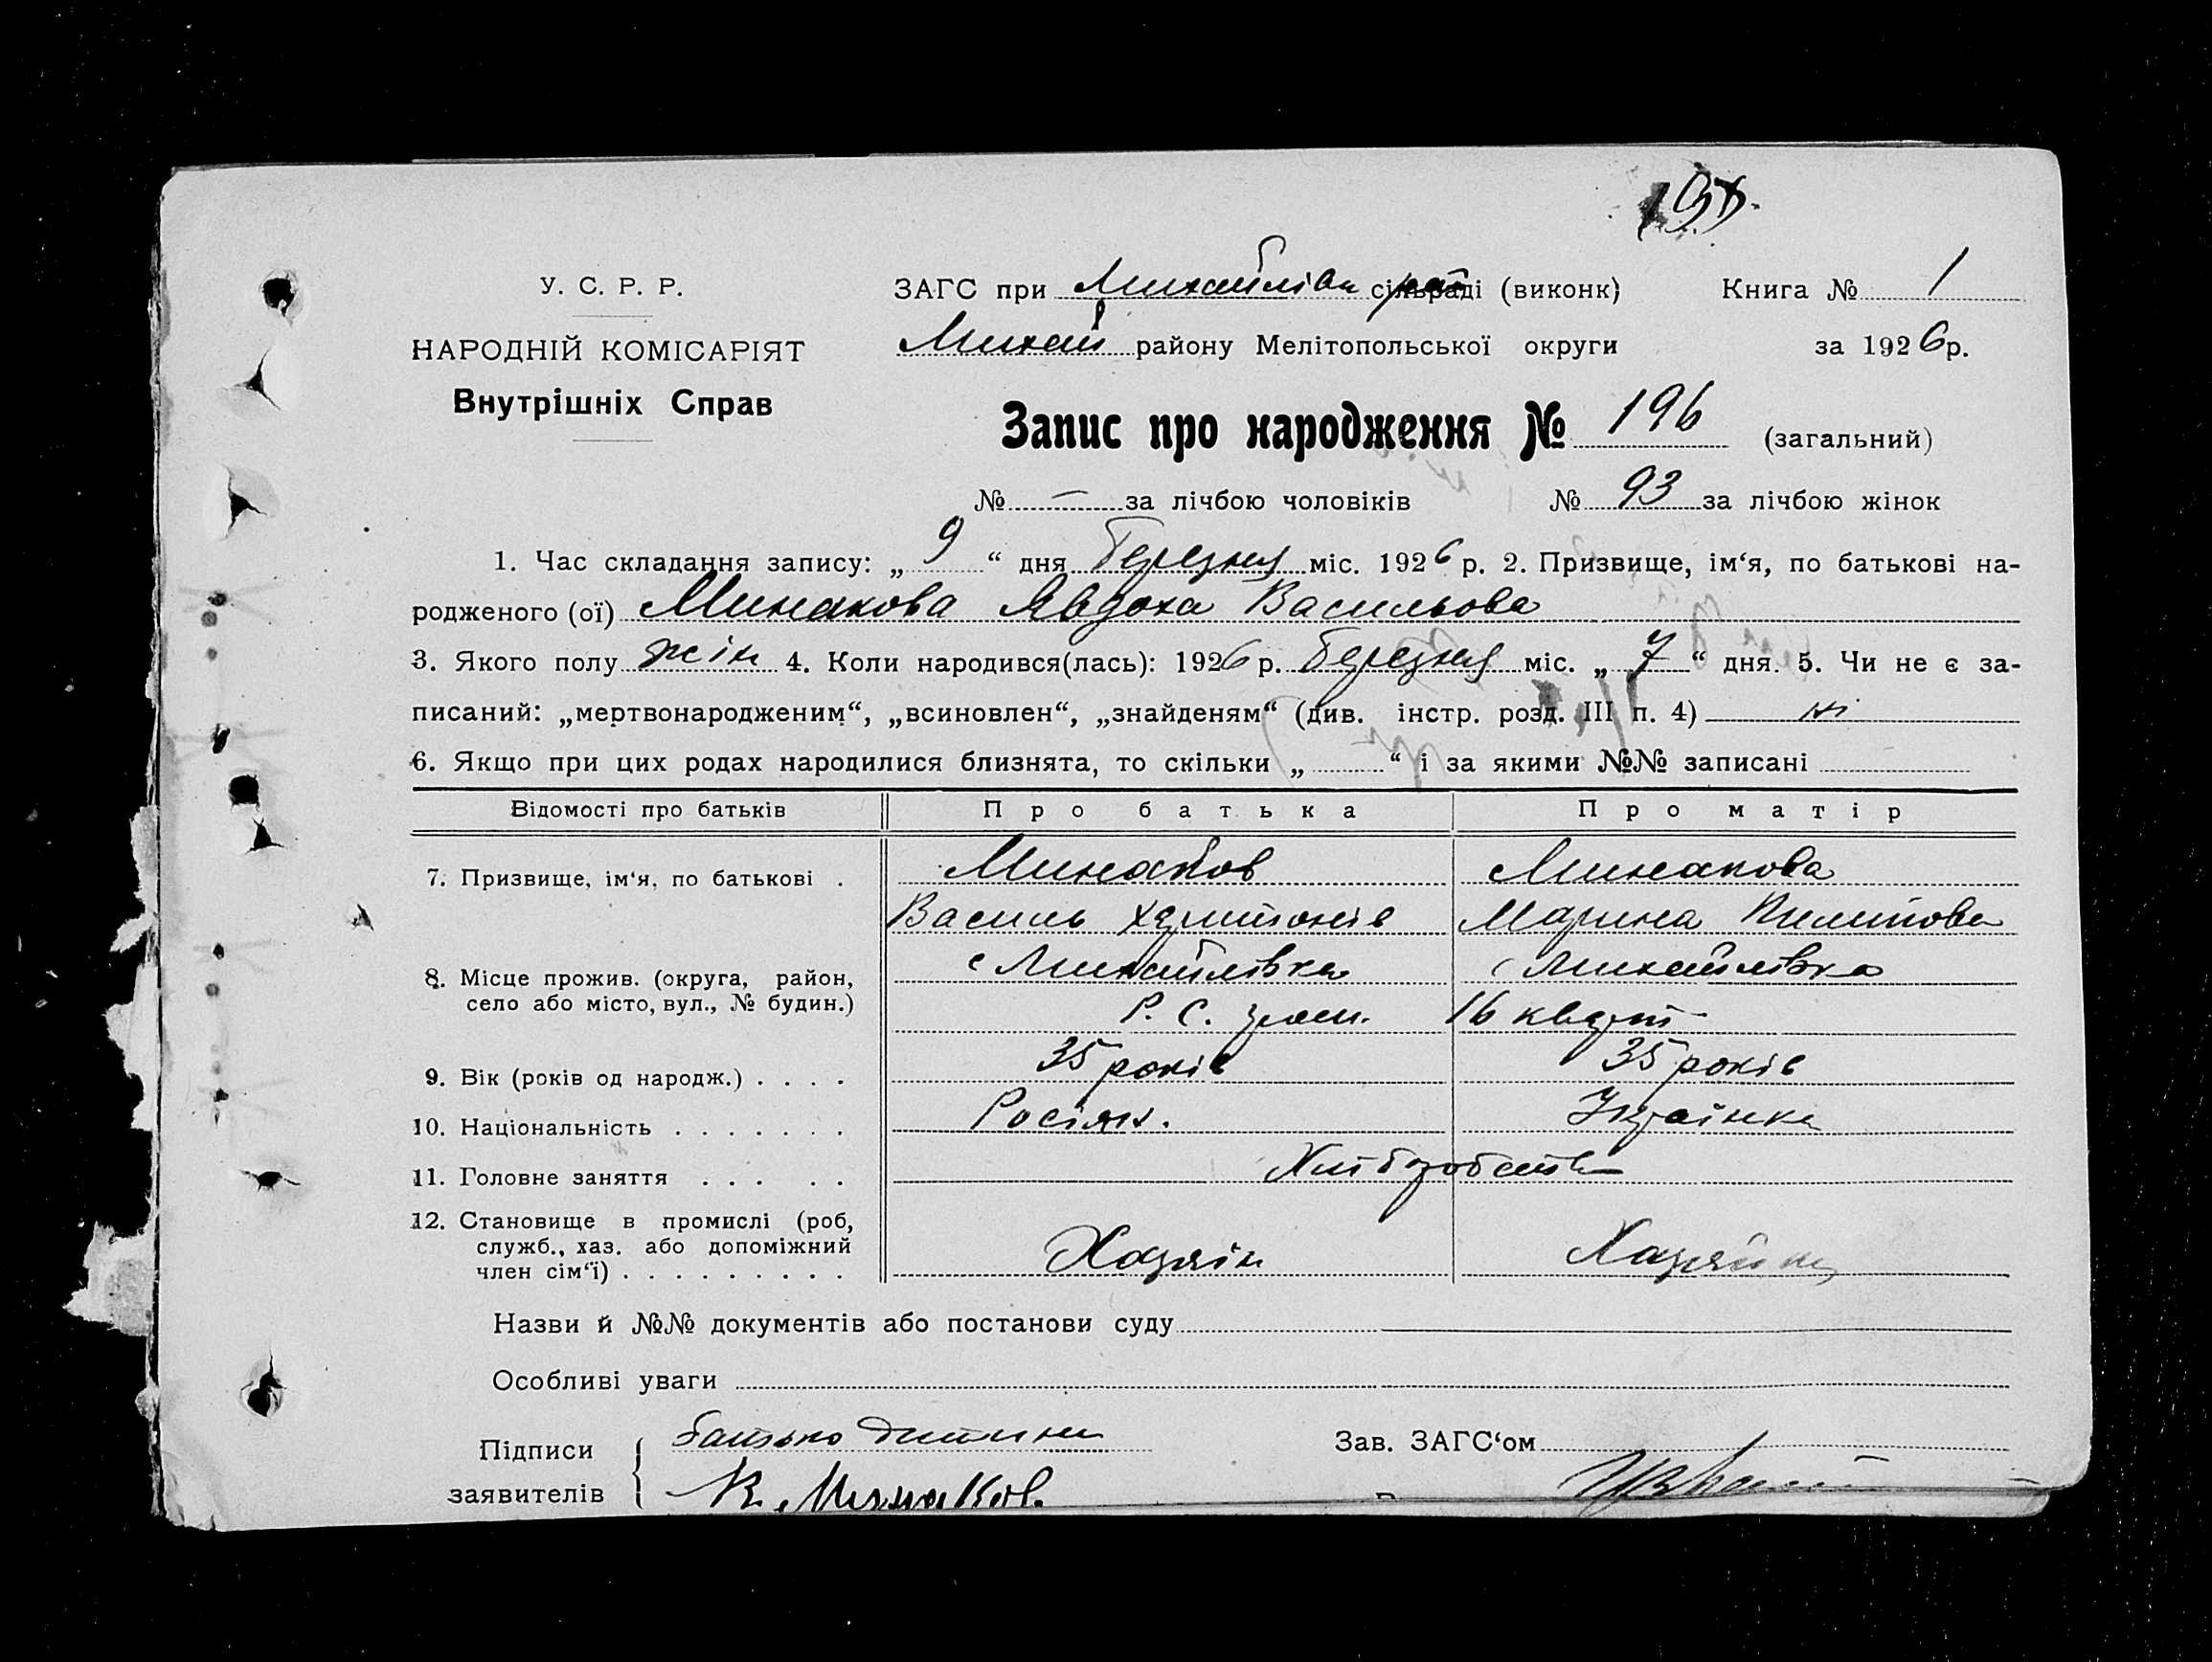 195.
У. С. Р. Р.
НАРОДНІЙ КОМІСАРІЯТ
Внутрішніх Справ
ЗАГС при Михайлівк сільраді (виконк)
Книга № 1
Михай району Мелітопольської округи
за 1926 р.
Запис про народження № 196 (загальний)
№ — за лічбою чоловіків № 93 за лічбою жінок
1. Час складання запису: „ 9 “ дня Березня міс. 1926 р. 2. Призвище, ім‘я, по батькові на-
родженого (ої) Минакова Явдоха Васильова
3. Якого полу жін 4. Коли народився(лась): 1926 р. Березня міс. „ 7 “ дня. 5. Чи не є за-
писаний: „мертвонародженим“, „всиновлен“, „знайденям“ (див. інстр. розд. III п. 4) ні
6. Якщо при цих родах народилися близнята, то скільки „ “ і за якими №№ записані
Відомості про батьків Про батька Про матір
7. Призвище, ім‘я, по батькові . Минаков Минакова
Василь Харитонів Марина Пилипова
8. Місце прожив. (округа, район, село або місто, вул., № будин.) с Михайлівка с Михайлівка
Р. С. 16 кварт
9. Вік (років од народж.) . . . . 35 років 35 років
10. Національність . . . . . . . Росіян. Українка
11. Головне заняття . . . . . Хліборобство
12. Становище в промислі (роб, служб., хаз. або допоміжний член сім‘ї) . . . . . . . . . Хазяїн Хазяйка
Назви й №№ документів або постанови суду
Особливі уваги
Підписи заявителів батько дитини
В. Минаков.
Зав. ЗАГС‘ом